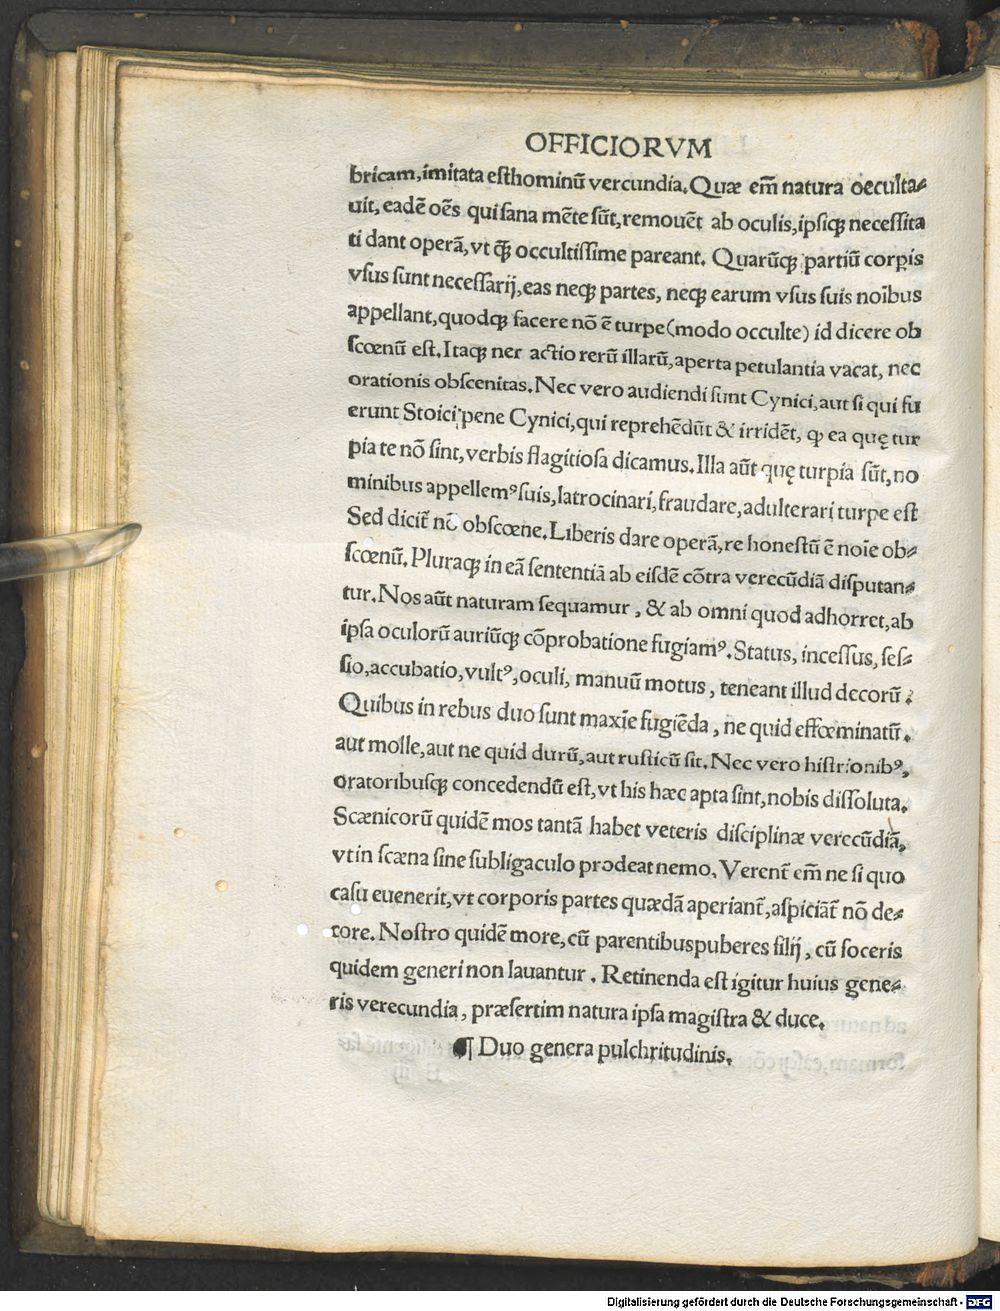 OFFICIORVM
bricam, imitata esthominũ vercundia. Quæ em̃ natura occulta⸗
uit, eadẽ oẽs qui sana mẽte sũt, remouẽt ab oculis, ipsiq; necessita
ti dant operã, vt q̃ occultissime pareant. Quarũq; partiũ corpis
vsus sunt necessarij, eas neq; partes, neq; earum vsus suis noĩbus
appellant, quodq; facere nõ ẽ turpe (modo occulte) id dicere ob
scœnũ est. Itaq; nec actio rerũ illarũ, aperta petulantia vacat, nec
orationis obscenitas. Nec vero audiendi sunt Cynici, aut si qui fu
erunt Stoici pene Cynici, qui reprehẽdũt & irridẽt, ꝙ ea quę tur
pia te nõ sint, verbis flagitiosa dicamus. Illa aũt quę turpia sũt, no
minibus appellemꝰ suis, latrocinari, fraudare, adulterari turpe est
Sed dicit̃ nõ obscœne. Liberis dare operã, re honestũ ẽ noĩe ob⸗
scœnũ. Pluraq; in eã sententiã ab eisdẽ cõtra verecũdiã disputan⸗
tur. Nos aũt naturam sequamur, & ab omni quod adhorret, ab
ipsa oculorũ auriũq; cõprobatione fugiamꝰ. Status, incessus, ses⸗
sio, accubatio, vultꝰ, oculi, manuũ motus, teneant illud decorũ.
Quibus in rebus duo sunt maxĩe fugiẽda, ne quid effœminatũ.
aut molle, aut ne quid durũ, aut rusticũ sit. Nec vero histrionibꝰ,
oratoribusq; concedendũ est, vt his hæc apta sint, nobis dissoluta.
Scænicorũ quidẽ mos tantã habet veteris disciplinæ verecũdiã,
vt in scæna sine subligaculo prodeat nemo. Verent̃ em̃ ne si quo
casu euenerit, vt corporis partes quædã aperiant̃, aspiciãt̃ nõ de⸗
core. Nostro quidẽ more, cũ parentibus puberes filij, cũ soceris
quidem generi non lauantur. Retinenda est igitur huius gene⸗
ris verecundia, præsertim natura ipsa magistra & duce.
¶ Duo genera pulchritudinis.
Digitalisierung gefördert durch die Deutsche Forschungsgemeinschaft - DFG